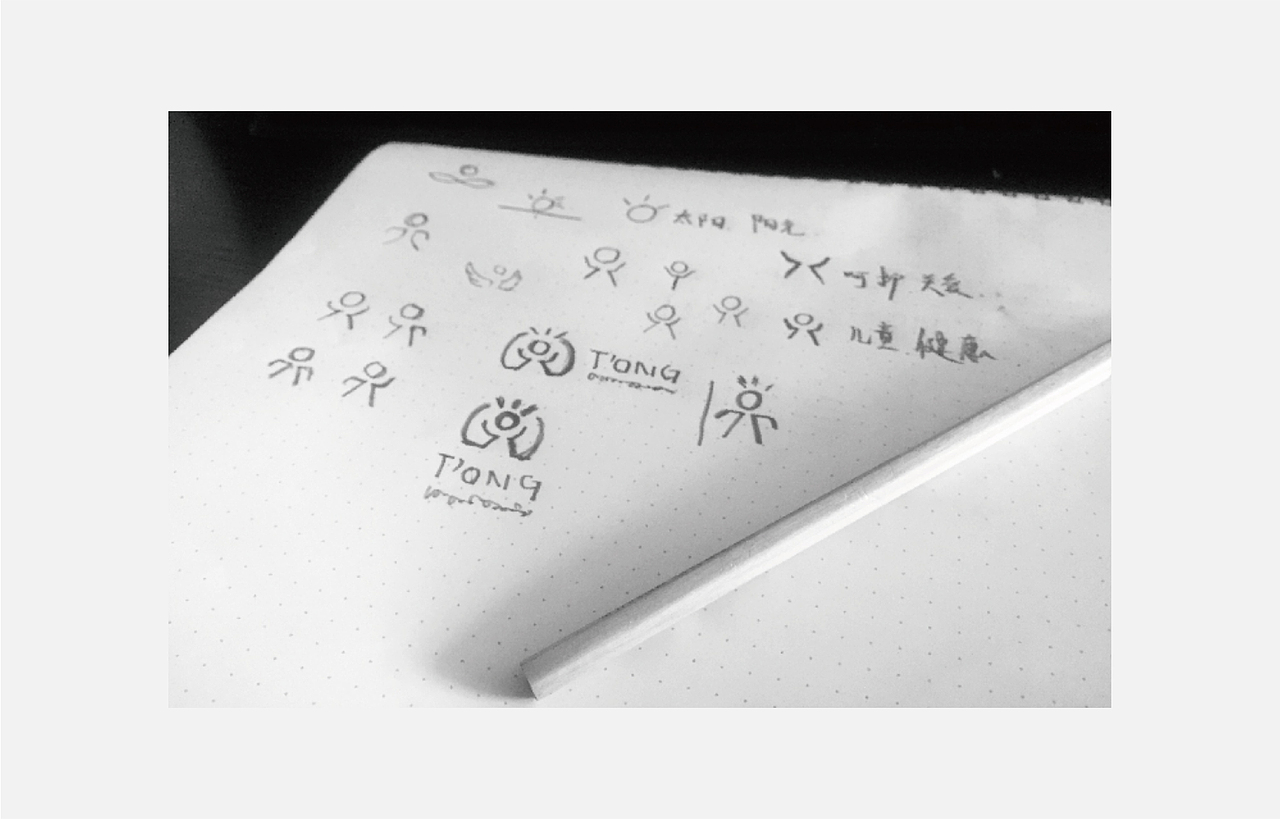 太阳 阳光
呵护 关爱...
儿童 健康
T'ONG
T'ONG